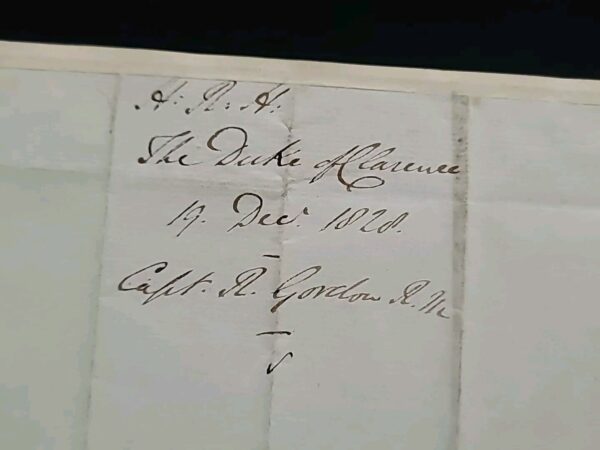 H: R: H:
The Duke of Clarence
19. Decr. 1828.
Capt. R. Gordon R. M